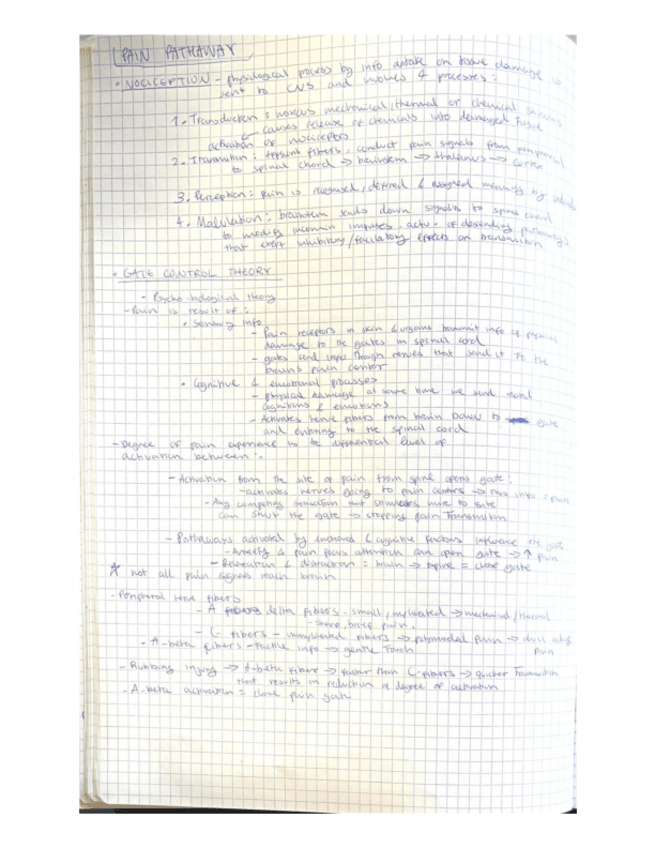 PAIN PATHAWAY
• NOCICEPTION - physiological process by info uptake on tissue damage is
sent to CNS and involves 4 processes:
1. Transduction: noxious mechanical, thermal or chemical stimulus
causes release of chemicals into damaged tissue
activation of nociceptors
2. Transmition: fibers, conduct pain signals from peripheral
to spinal chord → brainstem → thalamus → cortex
3. Perception: Pain is recognised, defined & assigned meaning by
4. Modulation: brainstem sends down signals to spinal chord
to modify incomin impulses - activ. of descending pathways
that exert inhibitory/facilatory effects on transmition
• GATE CONTROL THEORY
- Psycho-biological theory
- Pain is result of:
• Sensory info
- Pain receptors in skin & organs transmit info of physical
damage to the gates in spinal cord
- gates send input though nerves that send it to the
brains pain center
• Cognitive & emotional processes
- physical damage at same time we send
cognitions & emotions
- Activates nerve fibers from brain down to gate
and entering to the spinal cord
- Degree of pain experience is the differential level of
activation between:
- Activation from the site of pain from spine opens gate:
- activates nerves going to pain centers →
- Any competing sensation that stimulates nerve to gate
can shut the gate → stopping pain transmition
- Pathaways activated by emotional & cognitive factors influence the gate
- Anxiety & pain focus attention can open gate → ↑ pain
- Relaxation & distraction = brain → spine = close gate
* not all pain signals reach brain
- Peripheral nerve fibers
- A delta fibers - small, myelinated → mechanical/thermal
- sharp, brief pain.
- C- fibers - unmyelinated fibers → polymodal pain → dull
pain
- A-beta fibers - tactile info → gentle touch
- Rubbing injury → A-beta fiber → faster than C-fibers → quicker transmition
that results in reduction of degree of activation
- A-beta activation = close pain gate